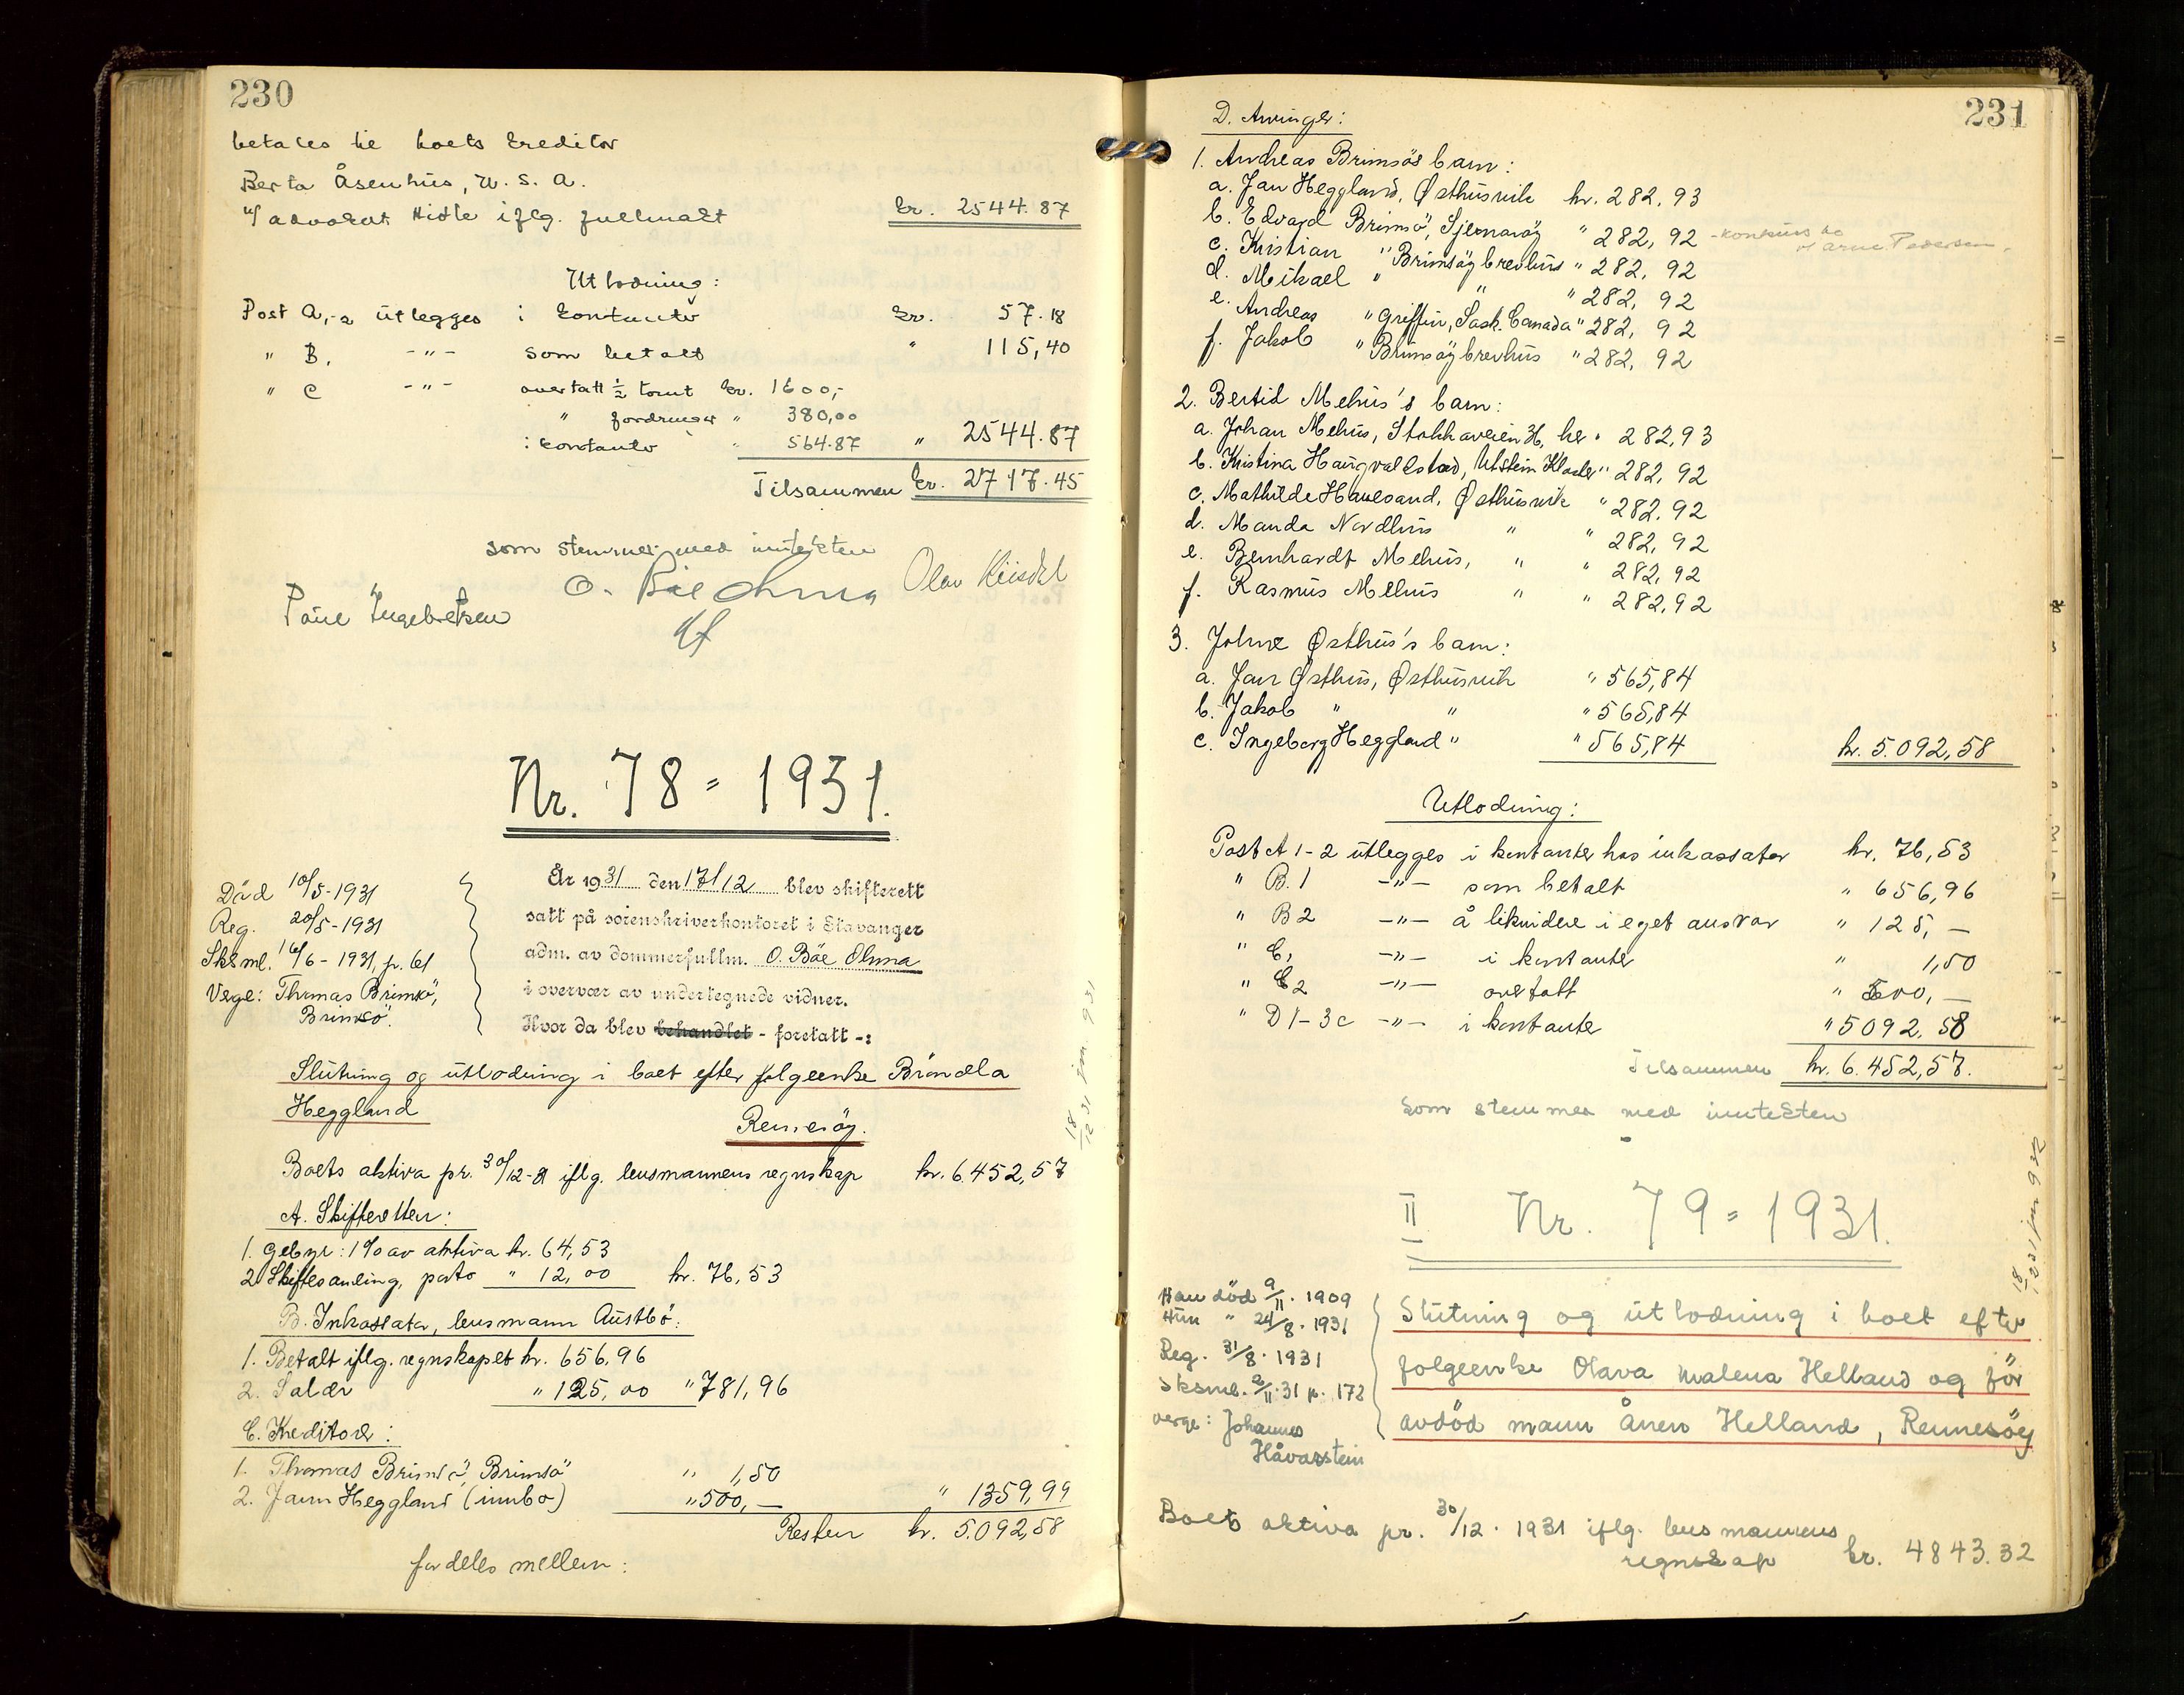 230
betales til boets kreditor
Berta Åsenhus, U.S.A.
v/ advokat Hidle iflg. fullmakt kr. 2544.87
Utlodning:
Post A,-2 utlegges i kontanter kr. 57.18
" B. -"- som betalt " 115,40
" C -"- overtatt ½ tomt kr. 1600,-
" fordringer " 380,00
i kontanter " 564.87 " 2544.87
Tilsammen kr. 2717.45
som stemmer med inntekten
O. Bäe Ohma Olav Kiisdal
Paul Ingebretsen
Nr. 78 = 1931.
Död 10/5-1931
Reg. 20/5-1931
Sks ml. 16/6-1931, p. 61
Verge: Thomas Brimsö,
Brimsö.
År 1931 den 17/12 blev skifterett
satt på sorenskriverkontoret i Stavanger
adm. av dommerfullm. O. Bäe Ohma
i overvær av undertegnede vidner.
Hvor da blev behandlet - foretatt -:
Slutning og utlodning i boet efter folgeenke Bröndla
Heggland Rennesöy.
Boets aktiva pr. 30/12-31 iflg. lensmannens regnskap kr. 6.452,57
A. Skifteretten:
1. Gebyr: 1% av aktiva kr. 64,53
2. Skiftesamling, porto " 12,00 kr. 76,53
B. Inkassator, lensmann Austbö:
1. Betalt iflg. regnskapet kr. 656,96
2. Salær " 125,00 " 781,96
C. Kreditorer:
1. Thomas Brimsö, Brimsö " 1,50
2. Jann Heggland (innbo) " 500,- " 1359,99
Resten kr. 5.092,58
fordeles mellem:
18/12 31 jnr. 931
231
D. Arvinger:
1. Andreas Brimsös barn:
a. Jan Heggland, Østhusvik kr. 282,93
b. Edvard Brimsö, Sjernaröy " 282,92 - konkurs bo v/ Arne Pedersen.
c. Kristian " Brimsöy brevhus " 282,92
d. Mikael " " " 282,92
e. Andreas " Griffin, Sask. Canada " 282,92
f. Jakob " Brimsöy brevhus " 282,92
2. Bertid Mehus's barn:
a. Johan Mehus, Stokkaveien 36, her " 282,93
b. Kristina Haugvaldstad, Utstein Kloster " 282,92
c. Mathilde Hauesand, Østhusvik " 282,92
d. Manda Nordhus " " 282,92
e. Bernhardt Mehus, " " 282,92
f. Rasmus Mehus " " 282,92
3. Johne Østhus's barn:
a. Jan Østhus, Østhusvik " 565,84
b. Jakob " " " 565,84
c. Ingeborg Heggland " " 565,84 kr. 5.092,58
Utlodning:
Post A 1-2 utlegges i kontanter hos inkassator kr. 76,53
" B. 1 -"- som betalt " 656,96
" B 2 -"- å likvidere i eget ansvar " 125,-
" C, -"- i kontanter " 1,50
" C2 -"- overtatt " 500,-
" D 1-3c -"- i kontanter " 5092,58
Tilsammen kr. 6.452,57.
som stemmer med inntekten
II Nr. 79 = 1931.
18/12 31 jnr 932
Han död 9/11. 1909
Hun " 24/8. 1931
Reg. 31/8. 1931
Sksml. 2/11. 31 p. 172
verge: Johannes
Håvarstein
Slutning og utlodning i boet efter
folgeenke Olava Malena Helland og för
avdöd mann Ånen Helland, Rennesöy
Boets aktiva pr. 30/12. 1931 iflg. lensmannens
regnskap kr. 4843.32